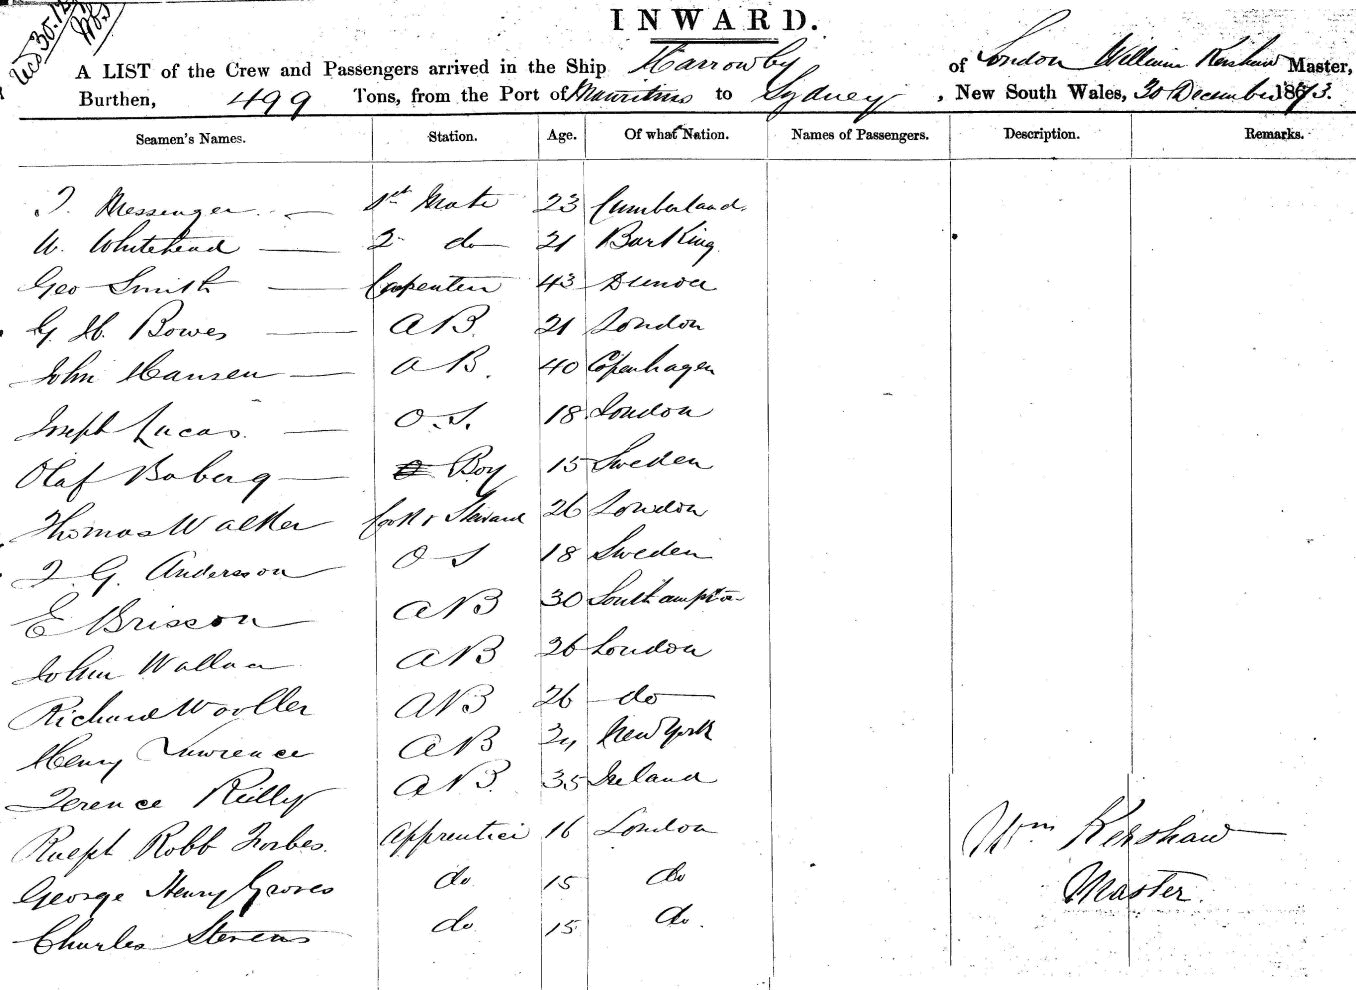 Recd 30.12
INWARD.
A LIST of the Crew and Passengers arrived in the Ship Harrowby of London William Kershaw Master,
Burthen, 499 Tons, from the Port of Mauritius to Sydney, New South Wales, 30 December 1873.
Seamen's Names. Station. Age. Of what Nation. Names of Passengers. Description. Remarks.
T. Messenger 1st Mate 23 Cumberland.
W. Whitehead 2 do 21 Barking
Geo Smith Carpenter 43 
G. H. Bowes AB 21 London
John Hansen AB. 40 Copenhagen
Joseph Lucas. O.S. 18 London
Olaf Boberg Boy 15 Sweden
Thomas Walker Cook & Steward 26 London
G. Andersson O S 18 Sweden
E Brisson AB 30 Southampton
John Wallace AB 26 London
Richard Wooller AB 26 do
Henry Lawrence AB New York
Terence Reilly AB. 35 Ireland
Ralph Robb Forbes. Apprentice 16 London
Wm Kershaw
George Henry Groves do 15 do
Master.
Charles Stevens do 15 do.